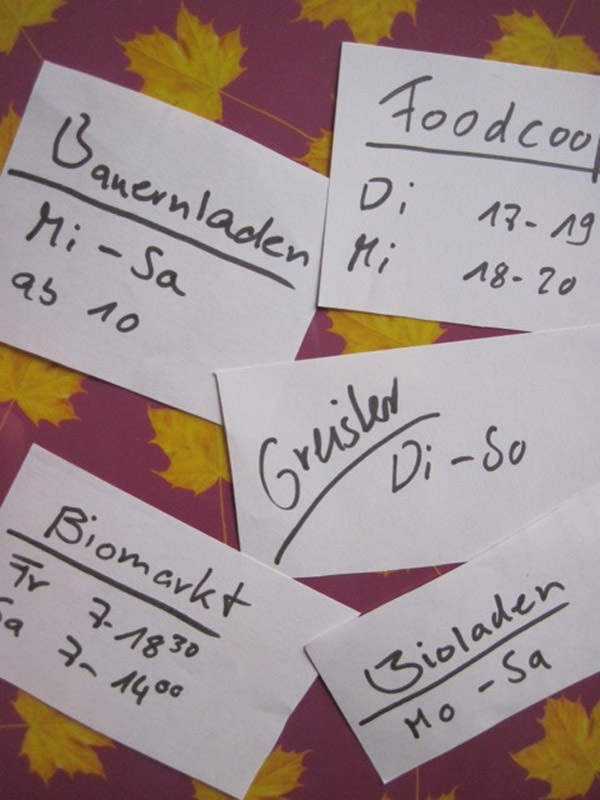 Bauernladen
Mi - Sa
ab 10
Foodcoo
Di 17-19
Mi 18-20
Greisler
Di - So
Biomarkt
Fr 7-18 30
Sa 7-14 00
Bioladen
Mo - Sa